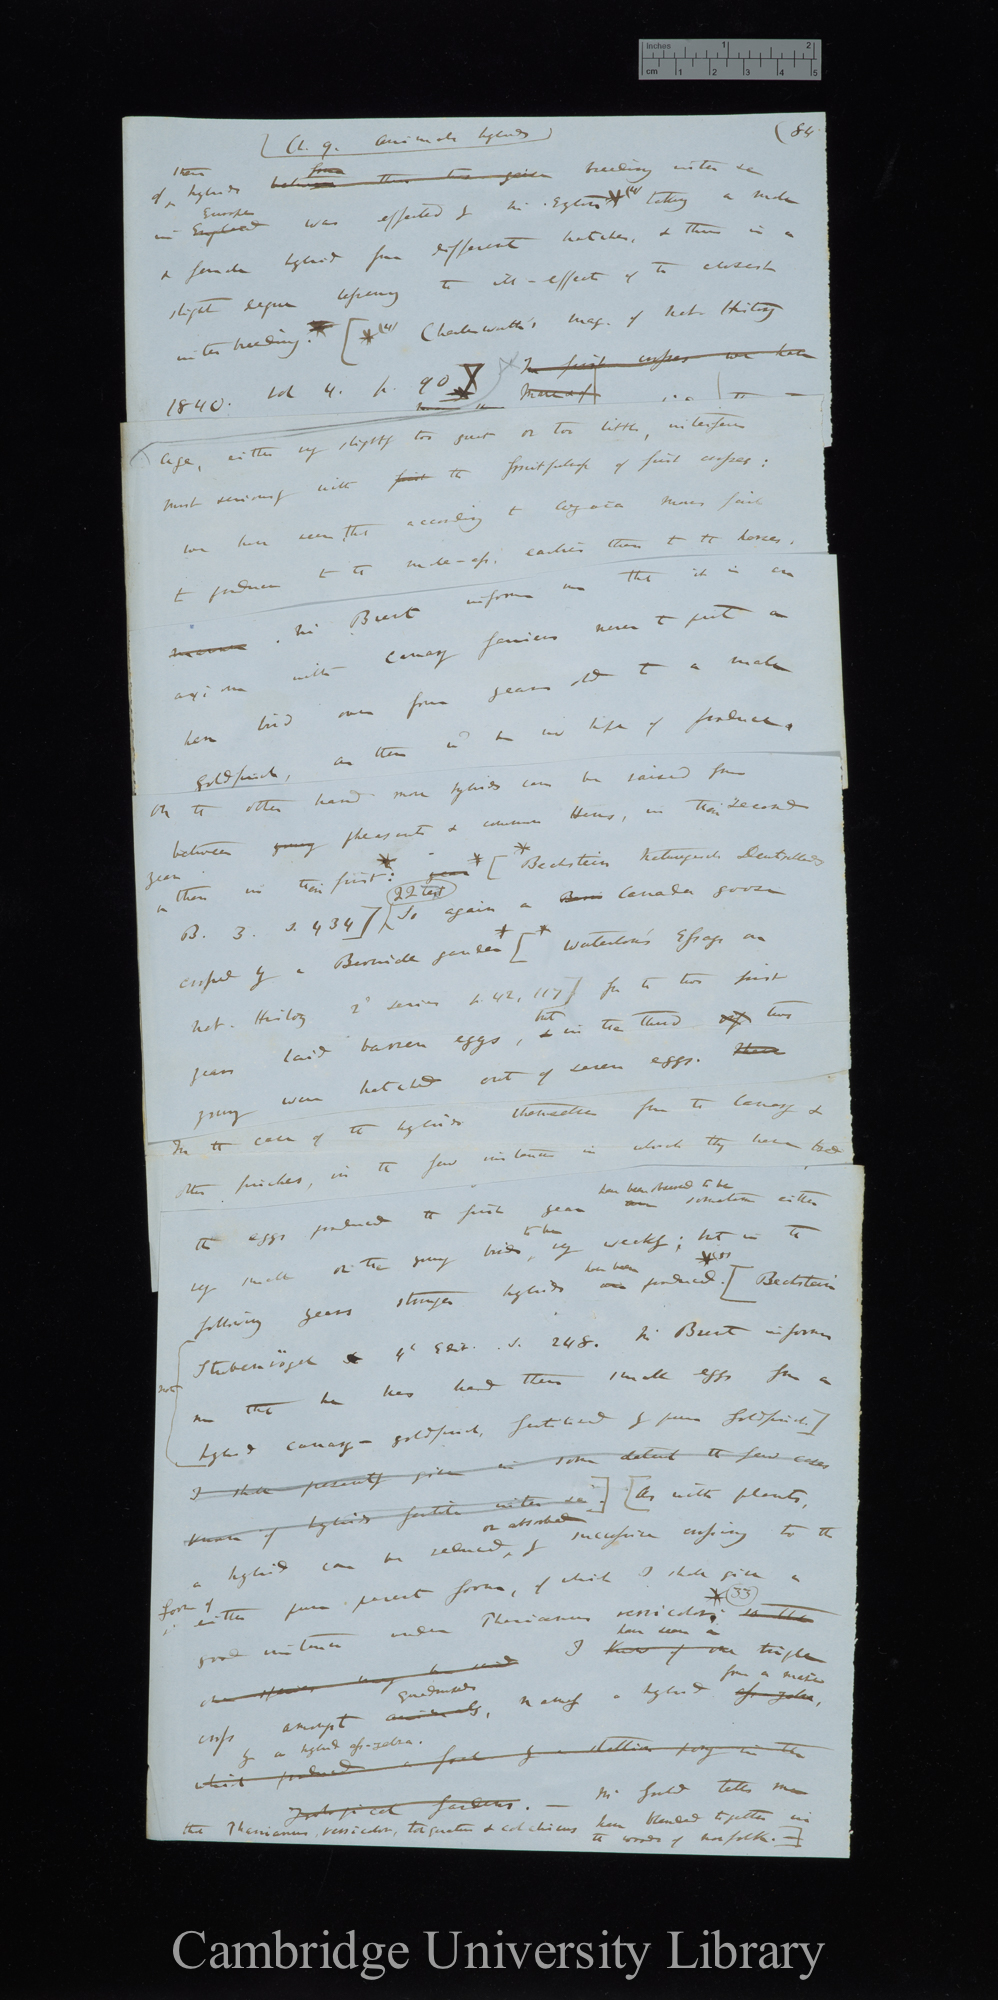 Inches 1 2
cm 1 2 3 4 5
(Ch. 9. Animals hybrids)
(84
these
of hybrids between these two geese breeding inter se
Europe
in England was effected by Mr. Eyton *(4) taking a male
& female hybrid from different hatches, & thus in a
slight degree lessening the ill-effects of the closest
inter breeding. * [*(4) Charlesworth's Mag. of Nat. History
1840. vol 4. p. 90 In first crosses we have
Age, either very slightly too great or too little, interferes
most seriously with first the fruitfulness of first crosses:
we have seen that according to Azara mares fail
to produce to the male-ass, earlier than to the horse.
Mr Brent informs me that it is an
axiom with canary fanciers never to put a
hen bird over four years old to a male
goldfinch, as there wd be no hope of produce.
On the other hand more hybrids can be raised from
between young pheasants & common Hens, in their second
year
than in their first: * year * [* Bechstein Naturgesch Deutschlands
22 text
B. 3. s. 434] So again a Canada goose
crossed by a Bernicle gander * [* Waterton's Essays on
Nat. History 2d series p. 42, 117] for the two first
years laid barren eggs, but & in the third two
young were hatched out of seven eggs.
In the case of the hybrids themselves from the Canary &
other finches, in the few instances in which they have bred
have been observed to be
the eggs produced the first year are sometimes either
to be
very small or the young birds, very weakly; but in the
have been
following years stronger hybrids are produced. *(5) [Bechstein
Stubenvögel 4th Edit. s. 248. Mr Brent informs
not
me that he has had these small eggs from a
hybrid canary-goldfinch, fertilised by pure goldfinch.]
I shall presently give in some detail the few cases
known of hybrids fertile inter se] [As with plants,
or absorbed
a hybrid can be reduced, by successive crossing to the
form of
either pure parent form, of which I shall give a
* (33)
good instance under Phasianus versicolor; in the
have seen a
I know of one triple
from a mare
cross amongst animals, namely a hybrid ass-zebra,
quadrupeds
by a hybrid ass-zebra.
which produced a foal by a stallion pony in the
Zoological Gardens. — Mr Gould tells me
that Phasianus versicolor, torquatus & colchicus have blended together in
the woods of Norfolk.—]
Cambridge University Library